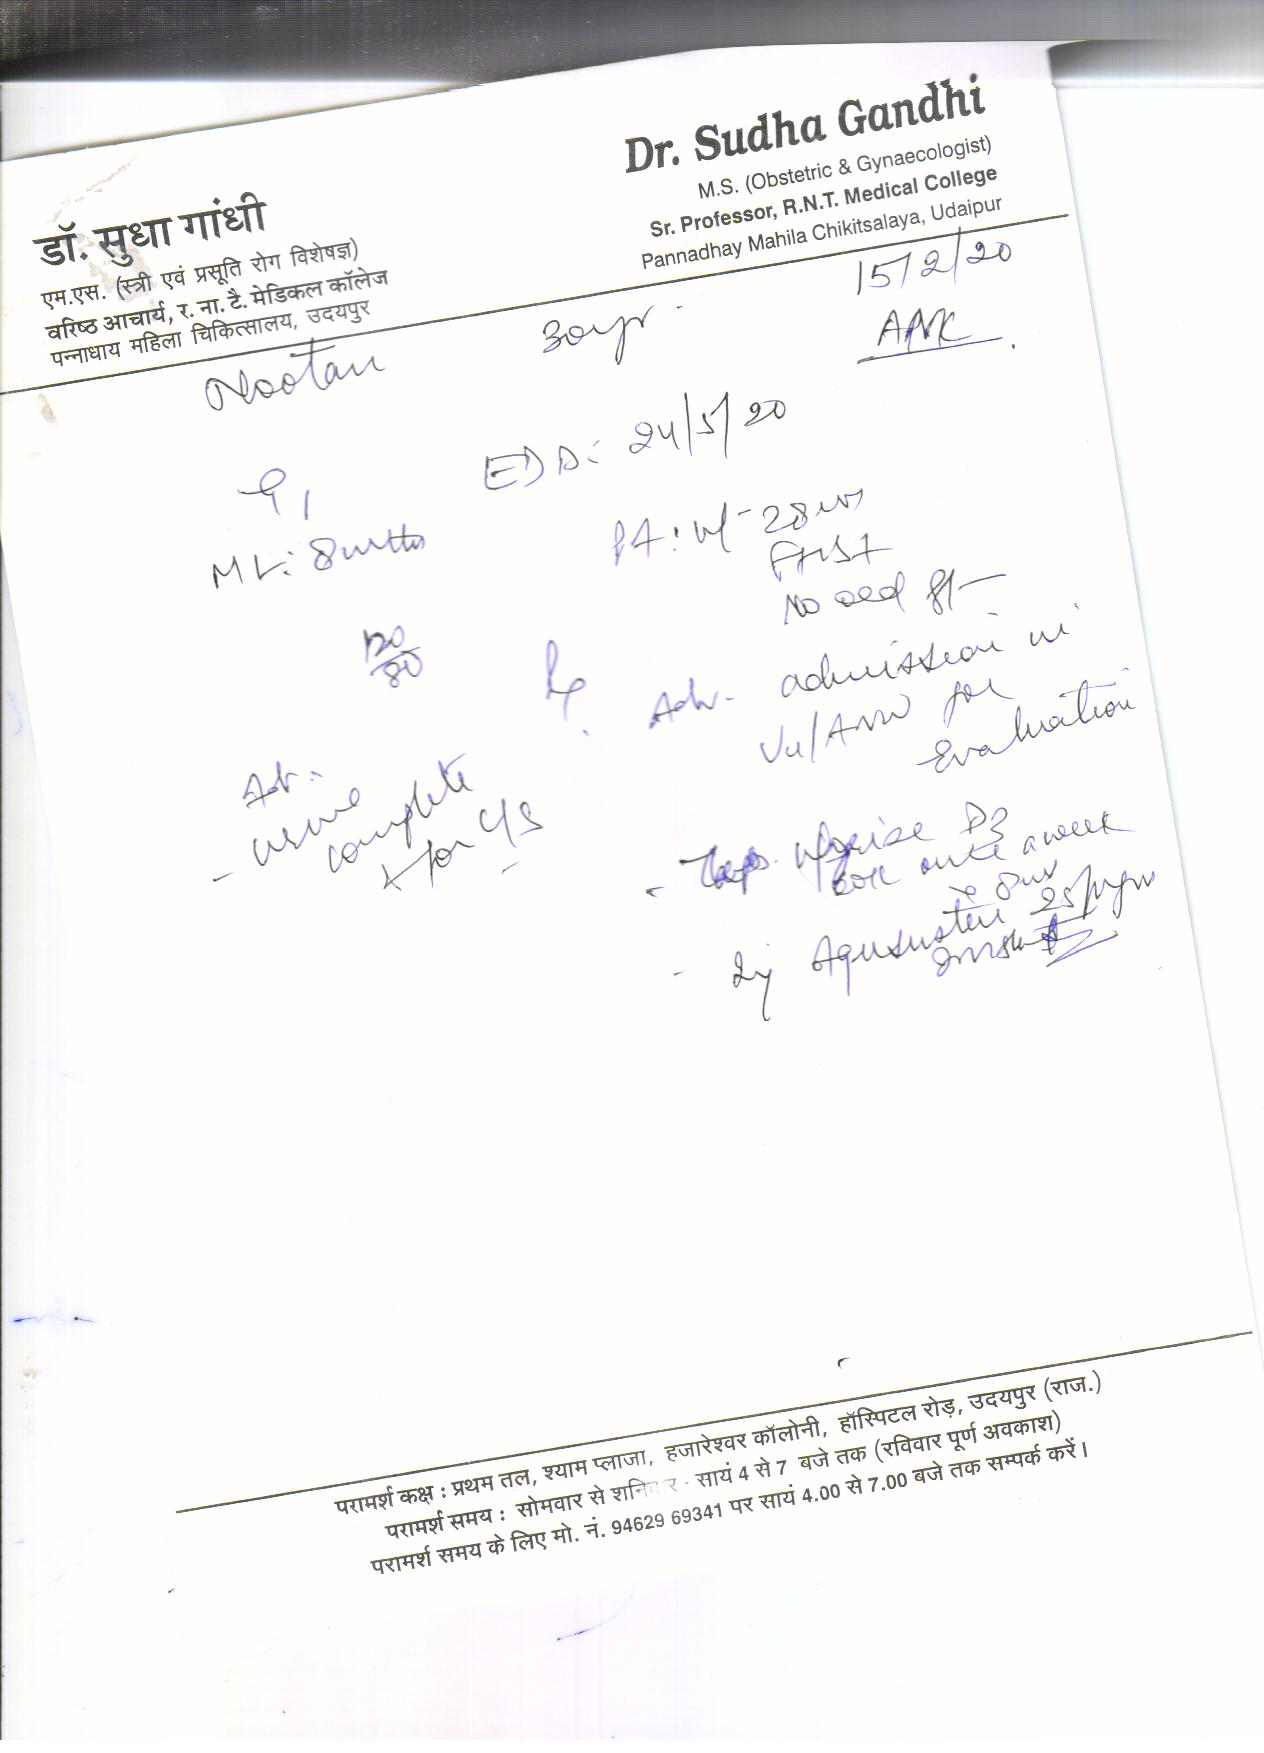 डॉ. सुधा गांधी
एम.एस. (स्त्री एवं प्रसूति रोग विशेषज्ञ)
वरिष्ठ आचार्य, र. ना. टै. मेडिकल कॉलेज
पन्नाधाय महिला चिकित्सालय, उदयपुर
Dr. Sudha Gandhi
M.S. (Obstetric & Gynaecologist)
Sr. Professor, R.N.T. Medical College
Pannadhay Mahila Chikitsalaya, Udaipur
15/2/20
Nootan 30yr
EDD: 24/5/20
G1
ML: 8 mths
PA: 28 w
120/80
Adv. admission in
for
Evaluation
Adv:-
- urine
complete
for C/S
- D3
60K once a week
- Inj
परामर्श कक्ष : प्रथम तल, श्याम प्लाजा, हजारेश्वर कॉलोनी, हॉस्पिटल रोड़, उदयपुर (राज.)
परामर्श समय : सोमवार से शनिवार - सायं 4 से 7 बजे तक (रविवार पूर्ण अवकाश)
परामर्श समय के लिए मो. नं. 94629 69341 पर सायं 4.00 से 7.00 बजे तक सम्पर्क करें।